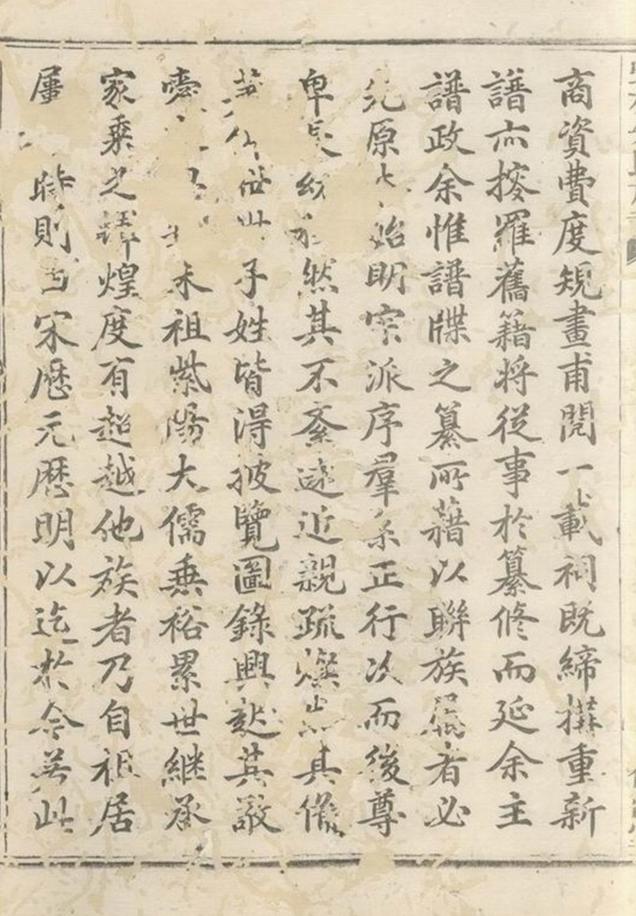 商資費度規畫甫閱一載祠既締搆重新
譜亦搜羅舊籍将從事於纂修而延余主
譜政余惟譜牒之纂所藉以聯族屬者必
先原始明宗派序羣系正行次而後尊
卑長幼然其不紊遠近親疏燦然其俻
子姓皆得披覽圖錄興起其敬
未祖紫陽大儒垂裕累世継承
家乗之煇煌度有超越他族者乃自祖居
時則當宋歷元歷明以迄於今若此